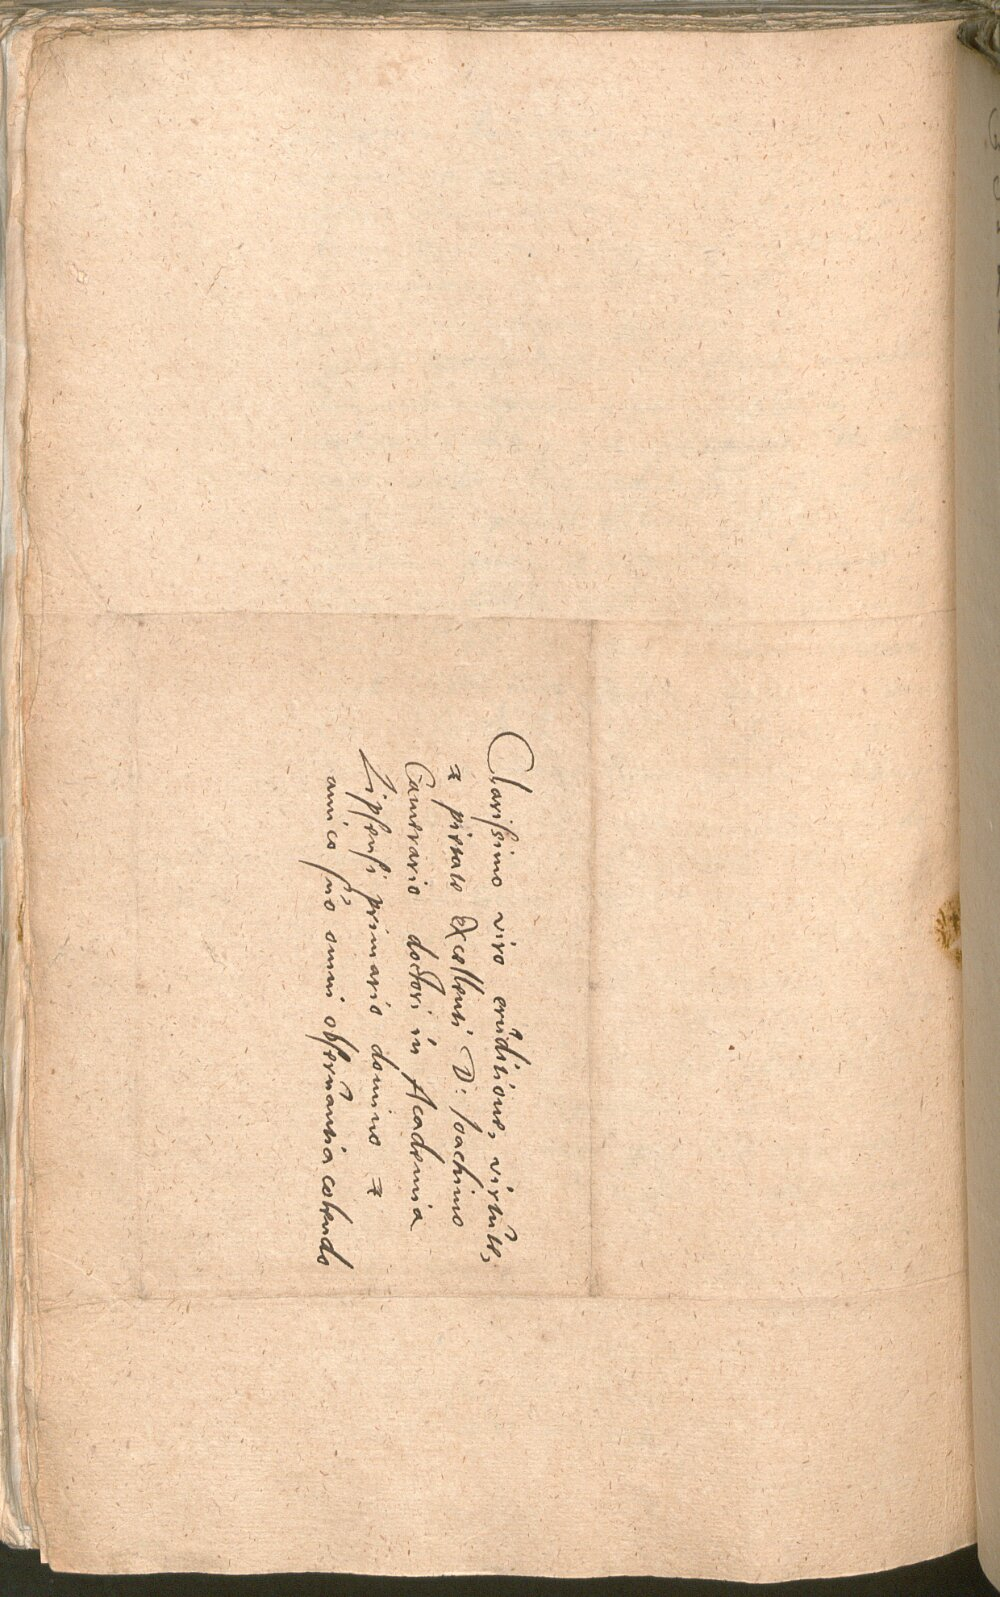 Clarissimo viro eruditione, virtute,
& pietate Excellenti D: Joachimo
Camerario doctori in Academia
Lipsensi primario domino &
amico suo omni observantia colendo